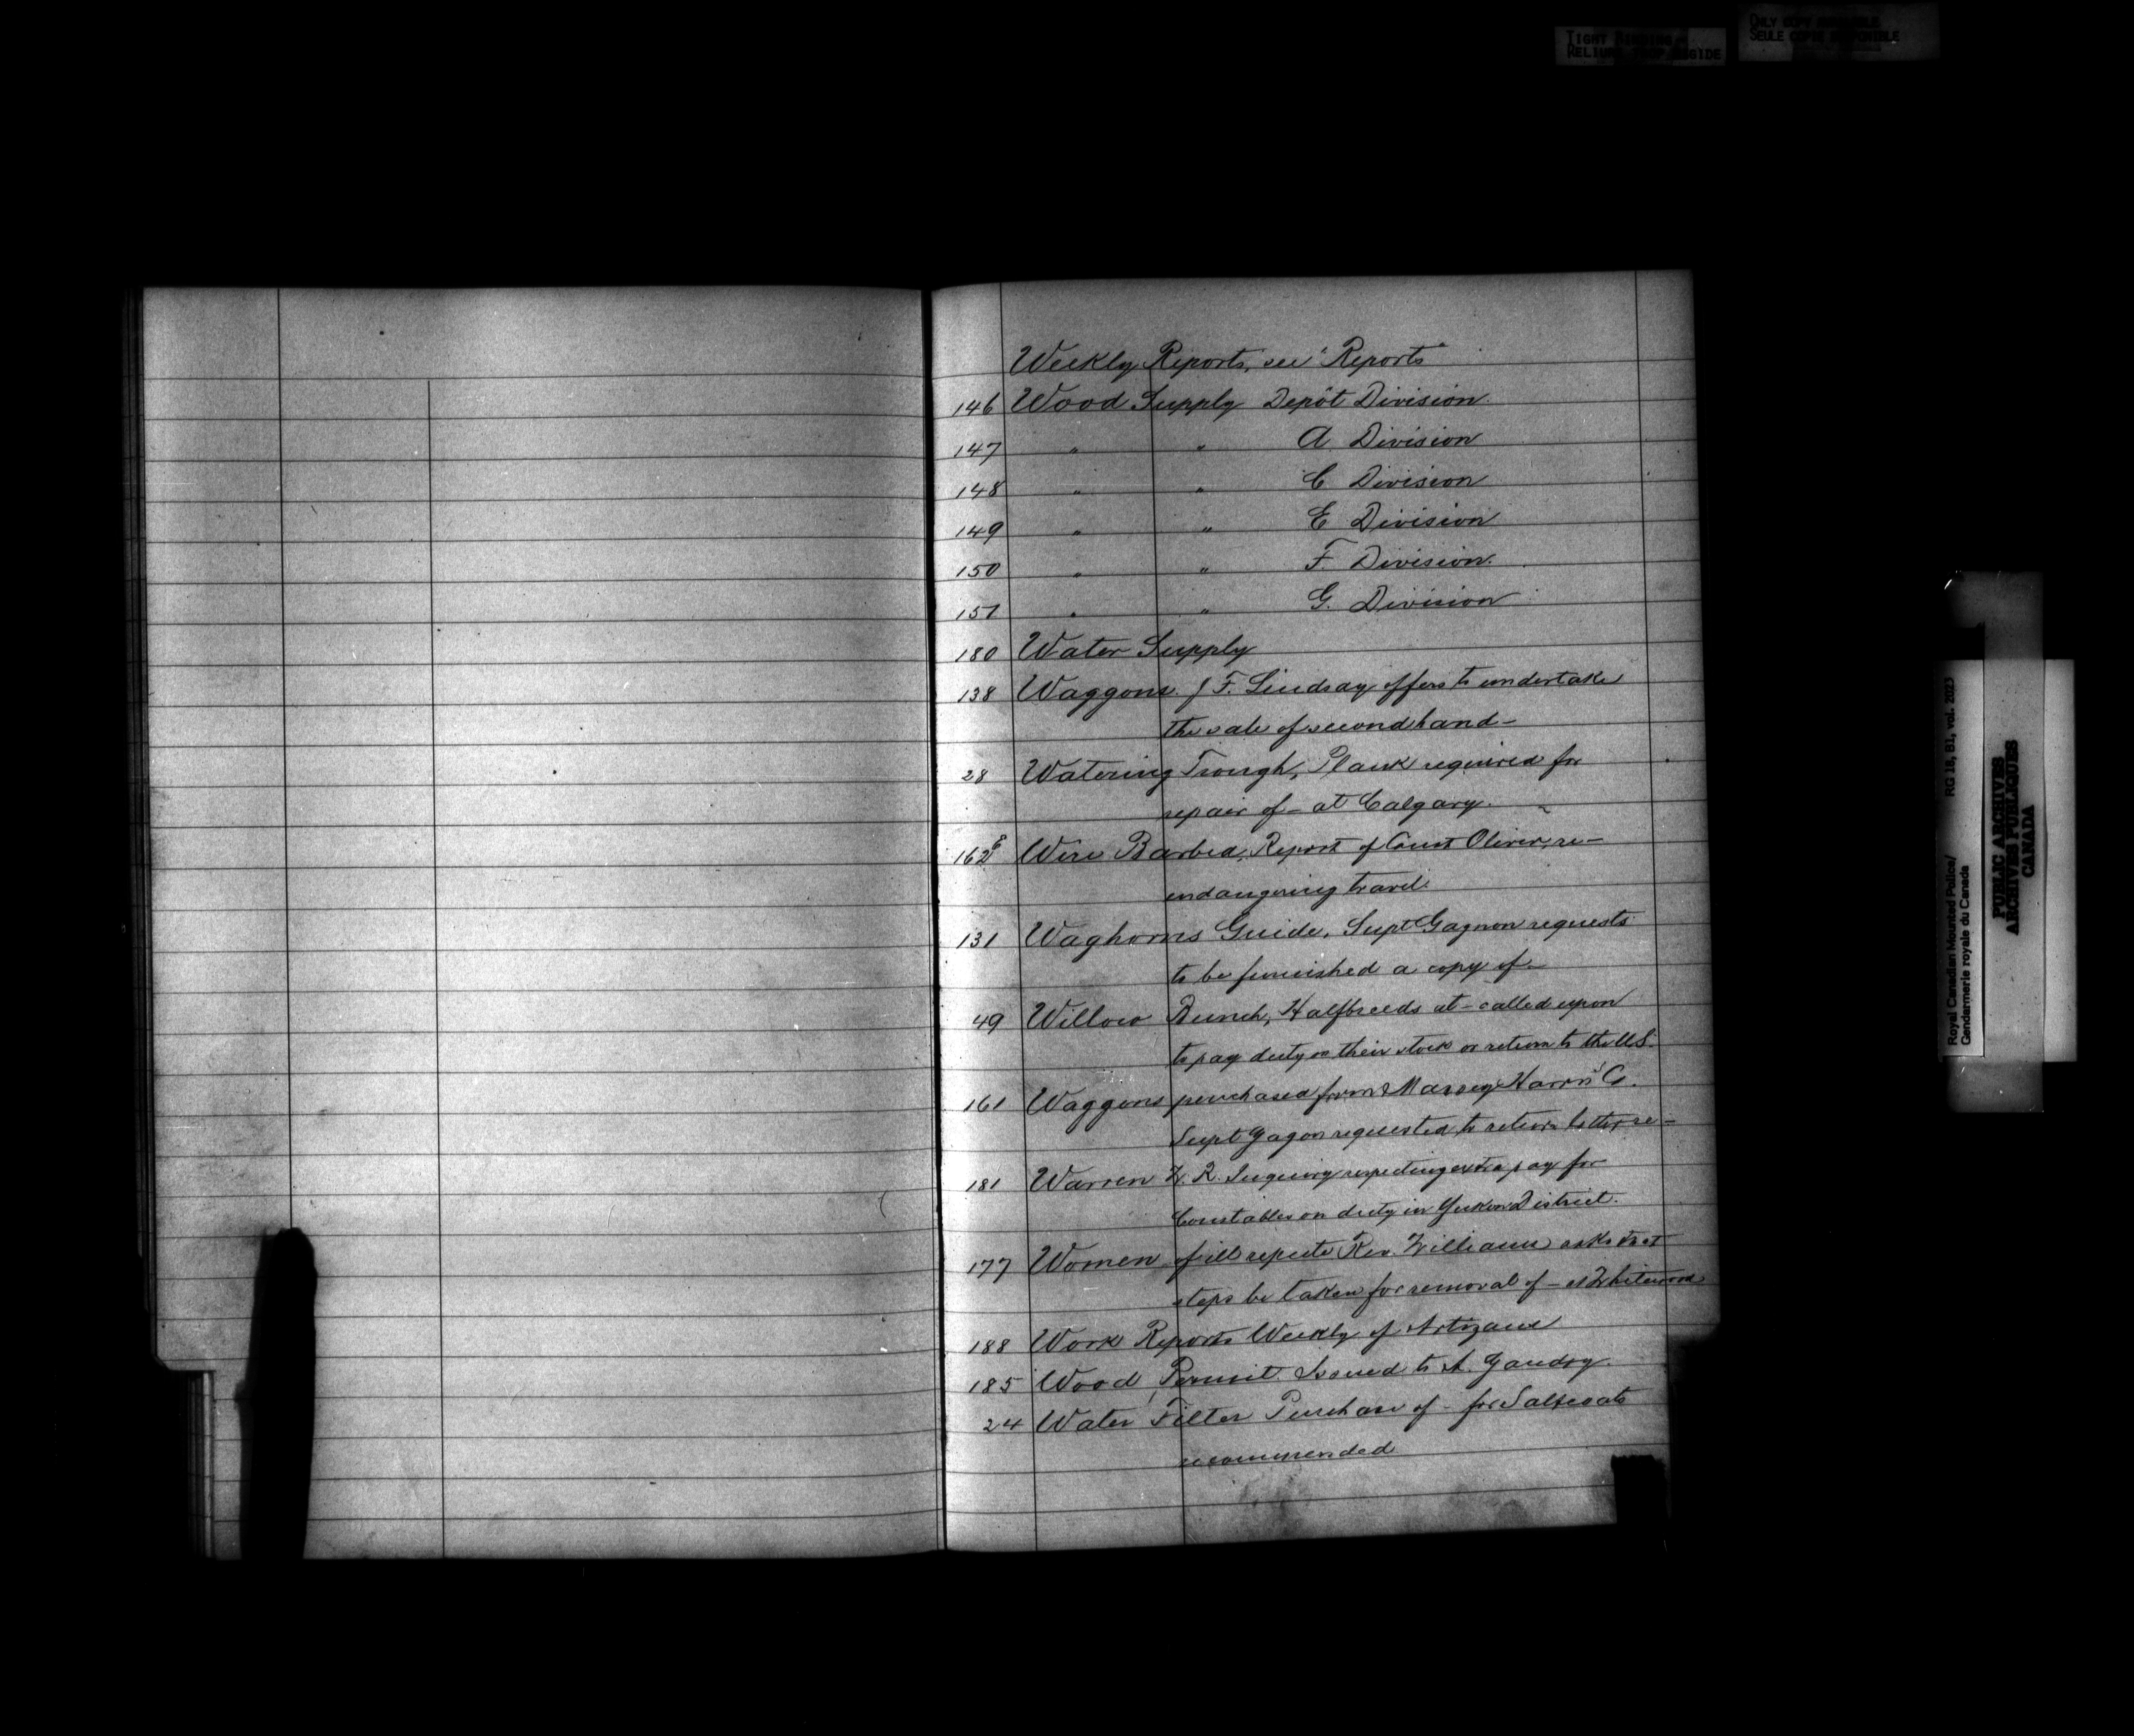 TIGHT BINDING
RELIURE TROP RIGIDE
ONLY COPY AVAILABLE
SEULE COPIE DISPONIBLE
Weekly Reports, see "Reports"
146 Wood Supply Depôt Division
147 " " A Division
148 " " C Division
149 " " E Division
150 " " F Division.
151 " " G. Division
180 Water Supply
138 Waggons. J F. Lindsay offers to undertake
the sale of second hand -
28 Watering Trough, Plank required for
repair of - at Calgary.
162 Wire Barbed, Report of Const Oliver, re -
endangering travel.
131 Waghorns Guide, Supt Gagnon requests
to be furnished a copy of -
49 Willow Bunch, Halfbreeds at - called upon
to pay duty on their stock or return to the U.S.
161 Waggons purchased from Massey Harris Co.
Supt Gagon requested to return letter re -
181 Warren W. R. Inquiry respecting extra pay for
Constables on duty in Yukon District.
177 Women of ill repute Rev. Williams asks that
steps be taken for removal of - at Whitewood
188 Work Reports Weekly of Artizans
185 Wood Permit Issued to A. Gaudry.
24 Water Filter Purchase of - for Saltcoats
recommended
Royal Canadian Mounted Police/ RG 18, B1, vol. 2023
Gendarmerie royale du Canada
PUBLIC ARCHIVES
ARCHIVES PUBLIQUES
CANADA